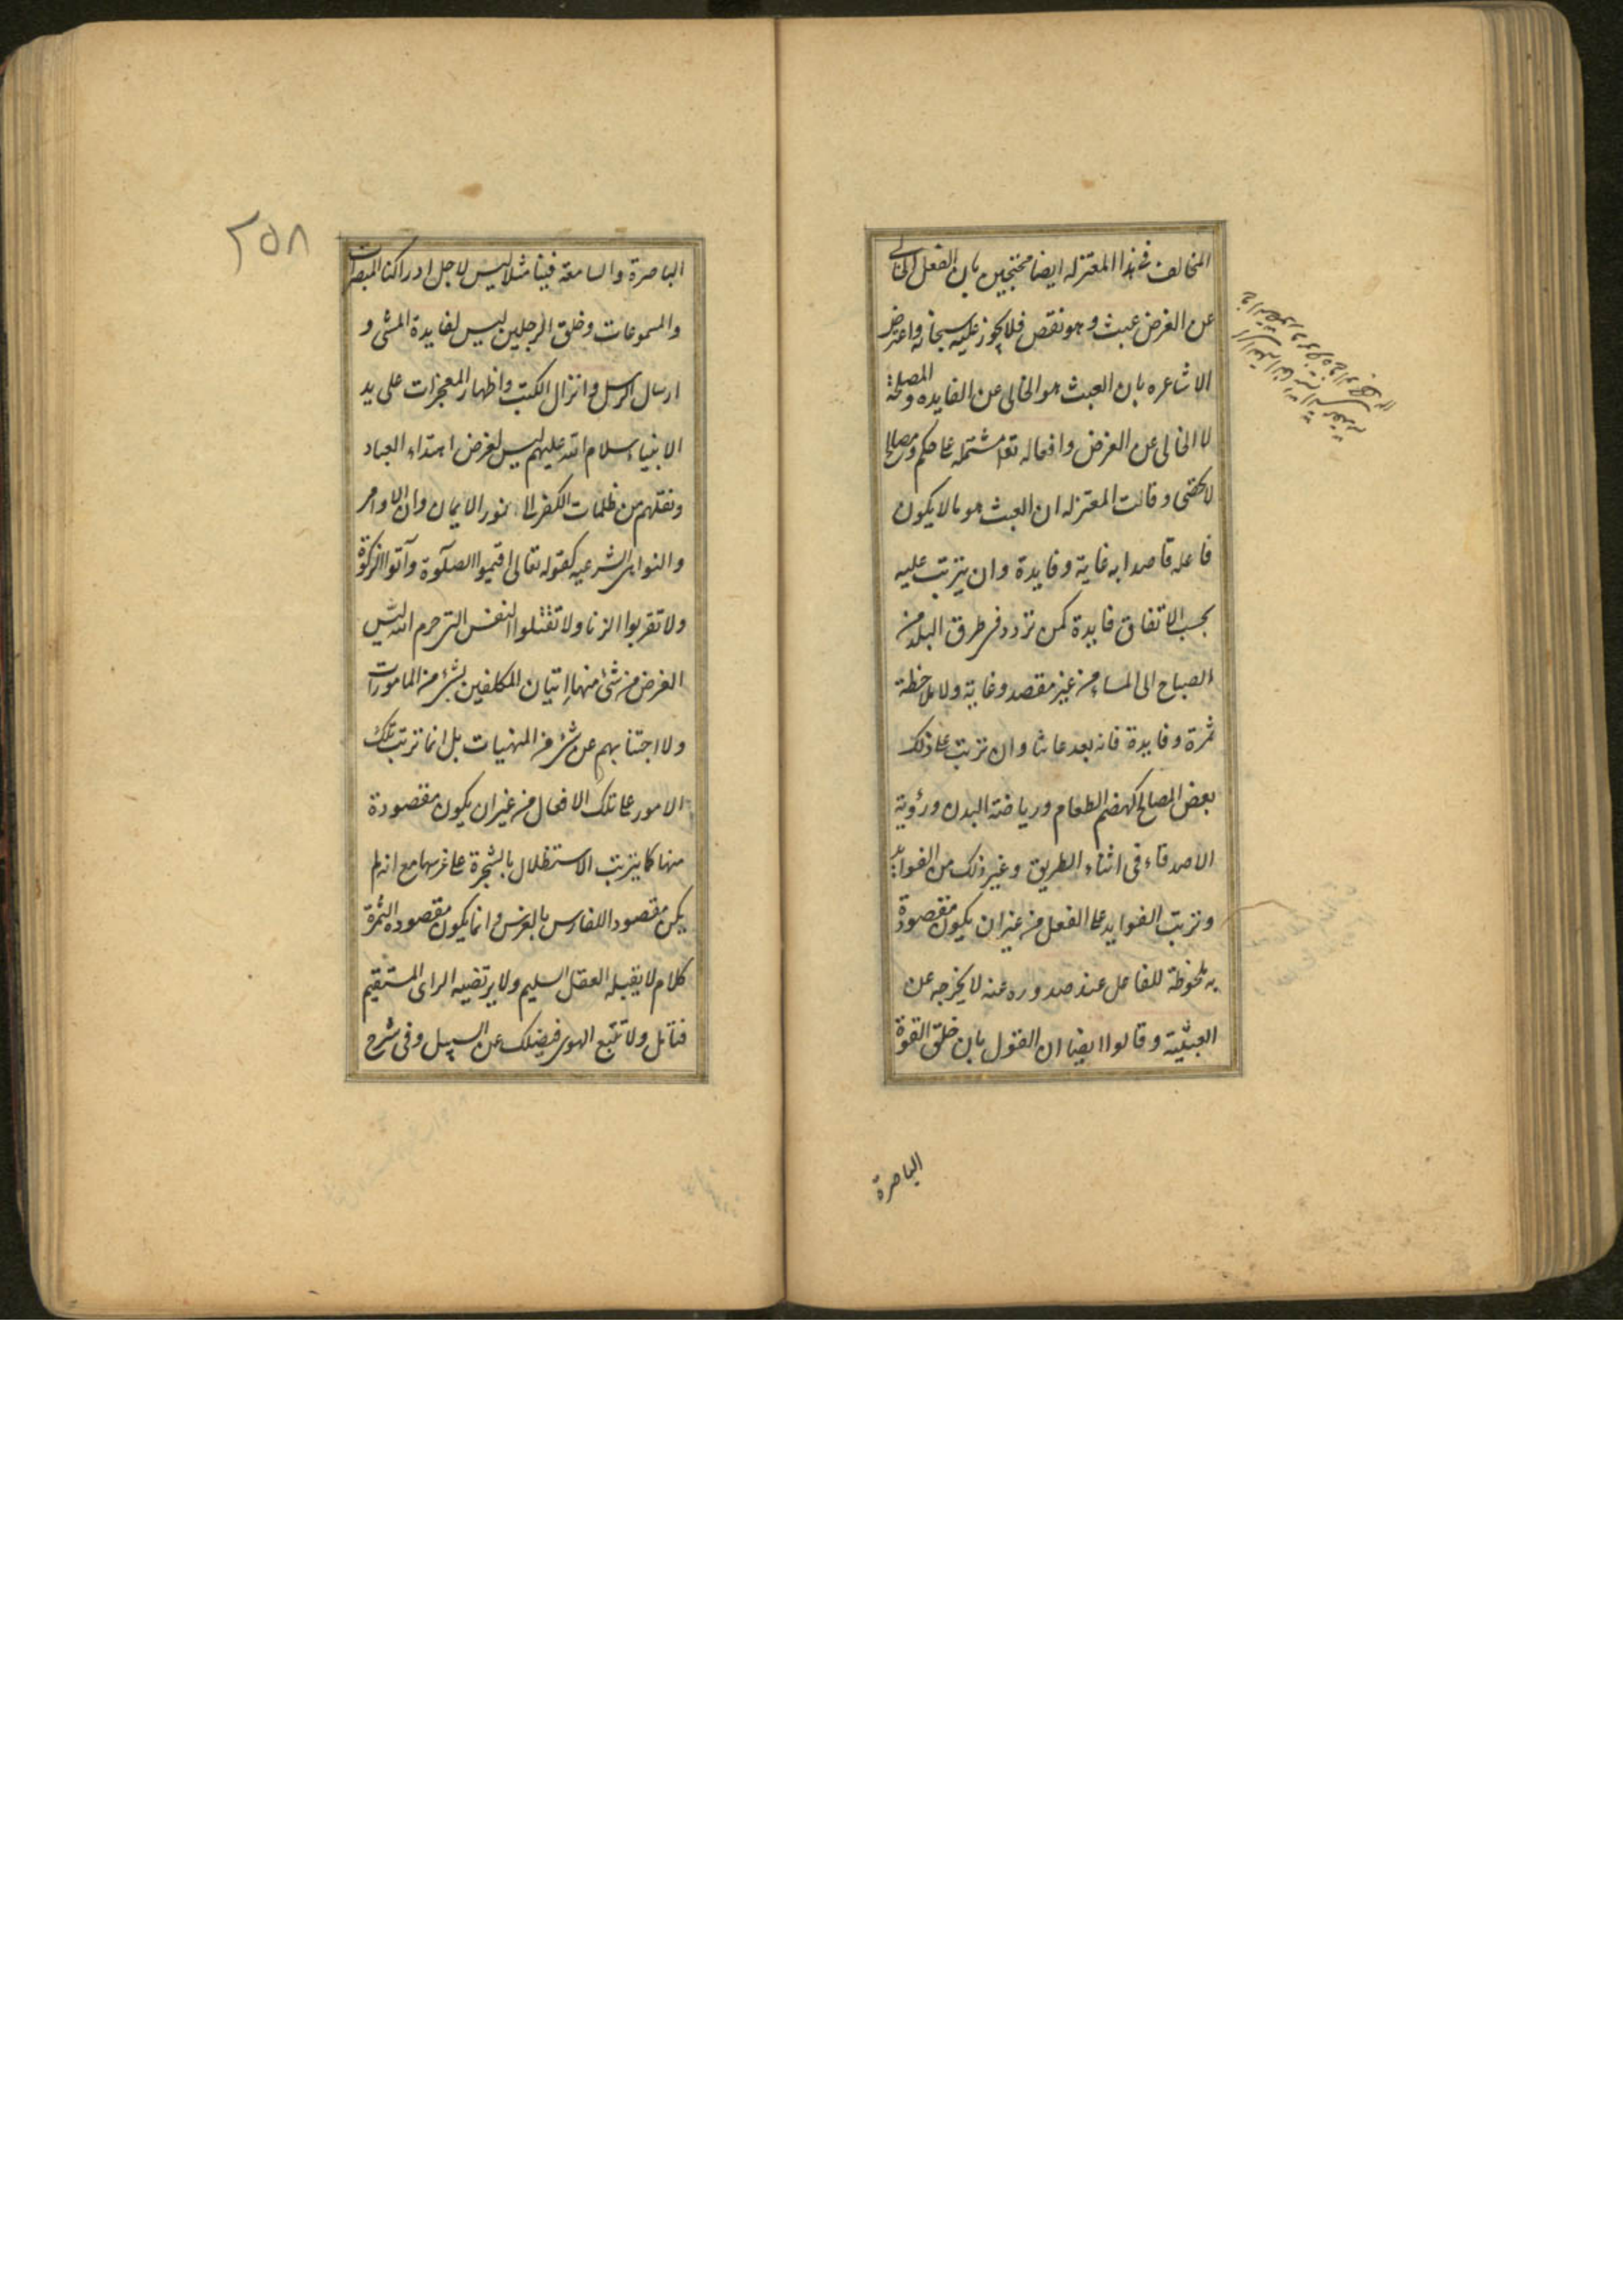 المخالف فى هذا المعتزله ايضا محتجين بان الفعل الخالى
عن الغرض عبث وهو نقص فلا يجوز عليه سبحانه واعترض
الاشاعره بان العبث هو الخالى عن الفايده والمصلحة
لا الخالى عن الغرض وافعاله تعا مشتمله على حكم ومصالح
لا تحصى وقالت المعتزله ان العبث هو ما لا يكون
فاعله قاصدا به غاية وفايدة وان يترتب عليه
بحسب الاتفاق فايدة كمن تردد فى طرق البلد من
الصباح الى المساء من غير مقصد وغاية ولا ملاحظة
ثمرة وفايدة فانه يعد عابثا وان ترتب على ذلك
بعض المصالح كهضم الطعام ورياضة البدن ورؤية
الاصدقاء فى اثناء الطريق وغير ذلك من الفوايد
وترتب الفوايد على الفعل من غير ان يكون مقصودة
به ملحوظة للفاعل عند صدوره عنه لا يخرجه عن
العبثية وقالوا ايضا ان القول بان خلق القوة
الباصرة
٢٥٨
الباصرة والسامعة فينا مثلا ليس لاجل ادراكنا المبصرات
والمسموعات وخلق الرجلين ليس لفايدة المشى و
ارسال الرسل وانزال الكتب واظهار المعجزات على يد
الانبياء سلام الله عليهم ليس لغرض اهتداء العباد
ونقلهم من ظلمات الكفر الى نور الايمان وان الاوامر
والنواهى الشرعيه كقوله تعالى اقيموا الصلوة وآتوا الزكوة
ولا تقربوا الزنا ولا تقتلوا النفس التى حرم الله ليس
الغرض من شئ منها اتيان المكلفين بشئ من المامورات
ولا اجتنابهم عن شئ من المنهيات بل انما ترتب تلك
الامور على تلك الافعال من غير ان يكون مقصودة
منها كما يترتب الاستظلال بالشجرة على غرسها مع انه لم
يكن مقصودا للغارس بالغرس وانما يكون مقصوده الثمرة
كلام لا يقبله العقل السليم ولا يرتضيه الراى المستقيم
فتأمل ولا تتبع الهوى فيضلك عن السبيل وفى شرح